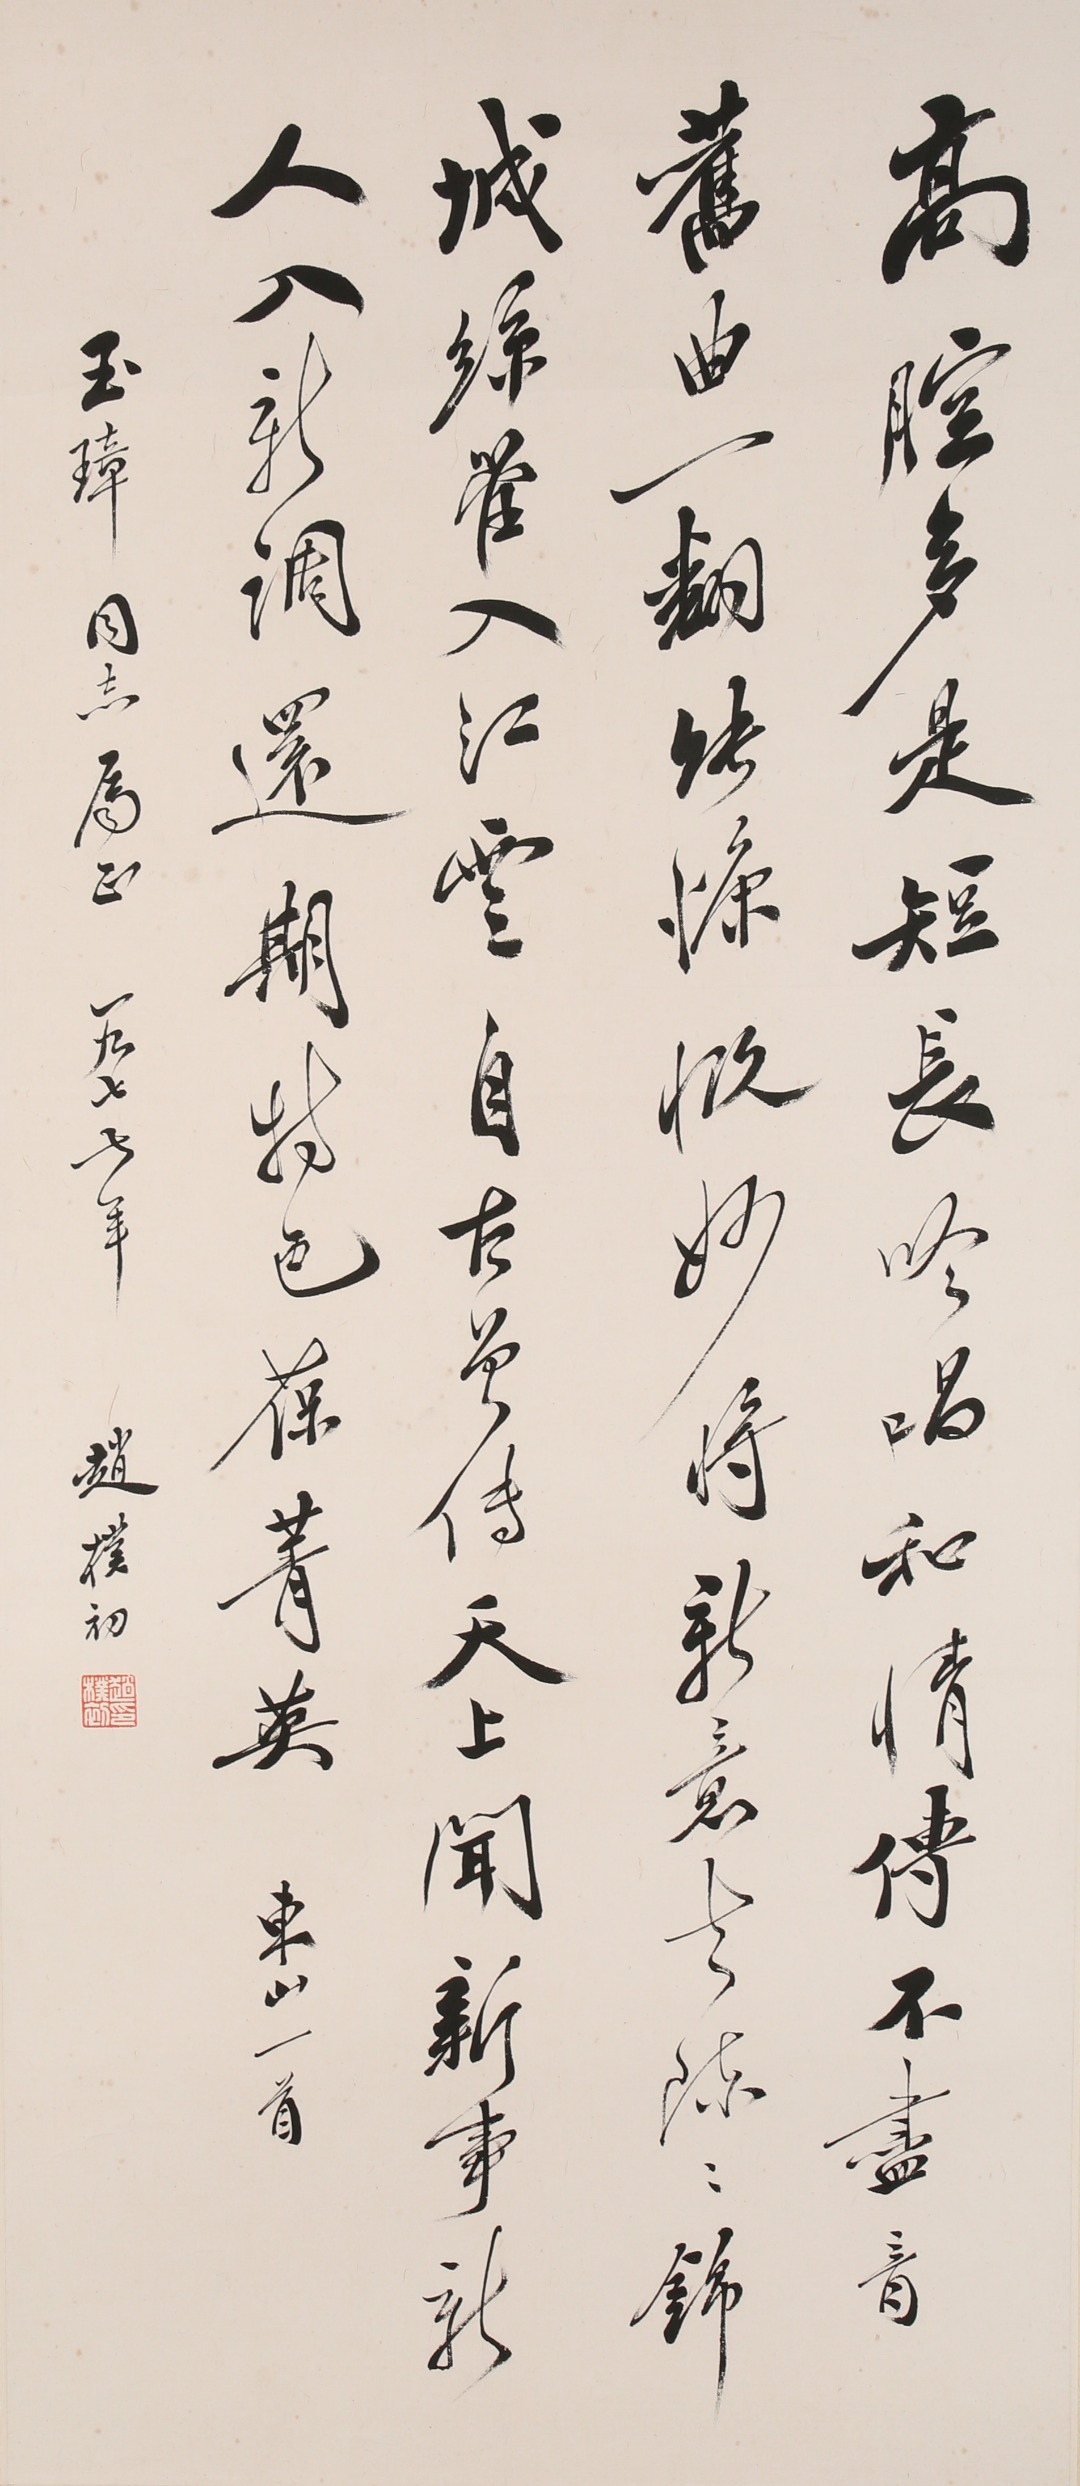 高腔多是短長吟唱和情傳不盡音
舊曲一翻能慷慨妙將新意去陳〻錦
城絲管入江雲自古曾傳天上聞新事新
人入新調還期特色葆菁英 東山一首
玉璋同志属正 一九七七年 趙樸初
趙樸初印